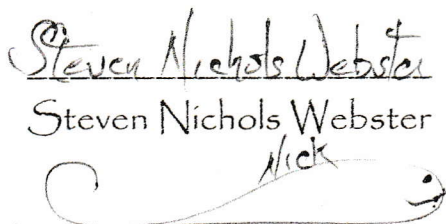 Steven Nichols Webster
Steven Nichols Webster
Nick